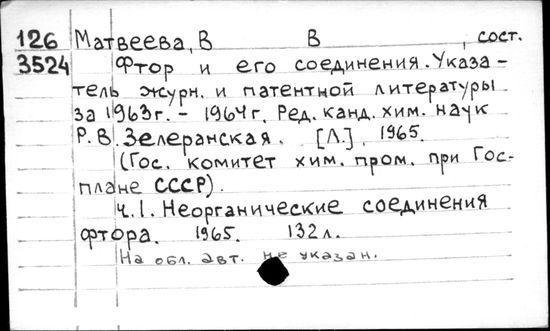 126 Матвеева, В В , сост.
3524 Фтор и его соединения. Указа-
тель журн. и патентной литературы
за 1963г. - 1964г. Ред. канд. хим. наук
Р. В. Зелеранская. [Л.], 1965.
(Гос. комитет хим. пром. при Гос-
плане СССР).
ч. 1. Неорганические соединения
фтора. 1965. 132 л.
На обл. авт. не указан.